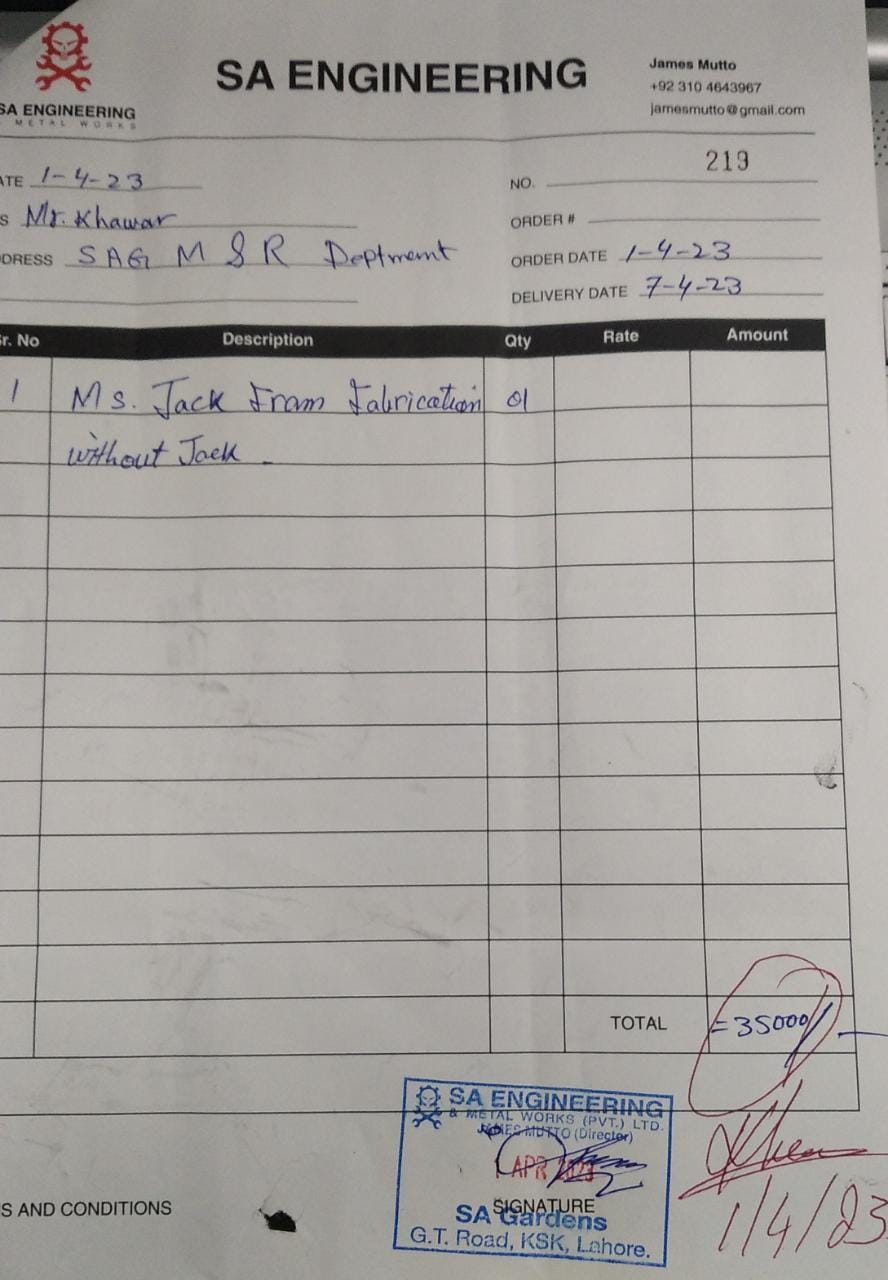 SA ENGINEERING
METAL WORKS
SA ENGINEERING
James Mutto
+92 310 4643967
jamesmutto@gmail.com
ATE 1-4-23
NO. 219
S Mr. Khawar
ORDER #
DRESS SAG M & R Deptment
ORDER DATE 1-4-23
DELIVERY DATE 7-4-23
Sr. No Description Qty Rate Amount
1 Ms. Jack Fram Fabrication 01
without Jack
TOTAL =35000/-
SA ENGINEERING
& METAL WORKS (PVT.) LTD.
JAMES MUTTO (Director)
1 APR 2023
SIGNATURE
SA Gardens
G.T. Road, KSK, Lahore.
S AND CONDITIONS
1/4/23